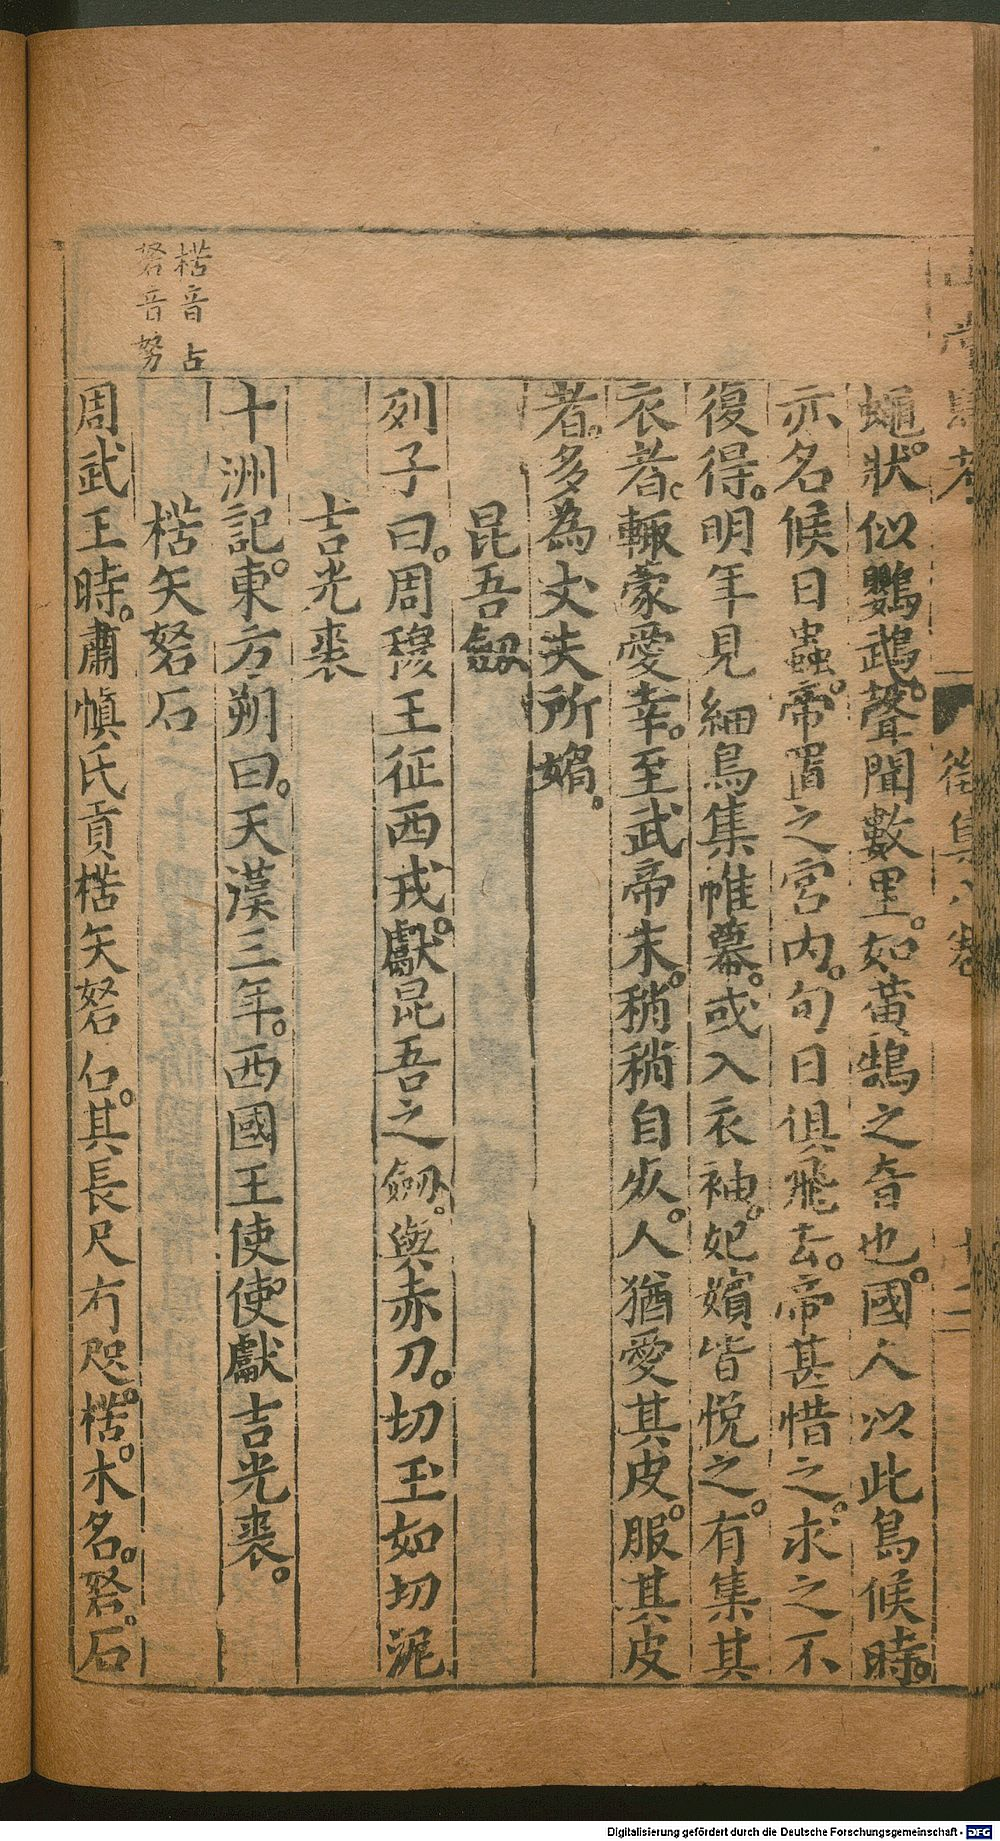 蠅。狀似鸚鵡。聲聞數里。如黃鵠之音也。國人以此鳥候時。
亦名候日蟲。帝置之宮內。旬日俱飛去。帝甚惜之。求之不
復得。明年見細鳥集帷幕。或入衣袖。妃嬪皆悅之。有集其
衣者。輙蒙愛幸。至武帝末。稍稍自𣦸。人猶愛其皮。服其皮
者。多為丈夫所媚。
昆吾劔
列子曰。周穆王征西戎。獻昆吾之劔。與赤刀。切玉如切泥
吉光裘
十洲記。東方朔曰。天漢三年。西國王使使獻吉光裘。
楛矢砮石
周武王時。肅慎氏貢楛矢砮石。其長尺有咫。楛。木名。砮。石
楛音占
砮音努
Digitalisierung gefördert durch die Deutsche Forschungsgemeinschaft - DFG